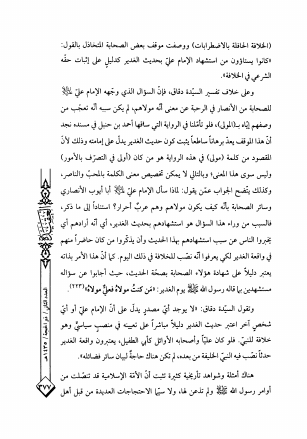 (الخلافة الحافلة بالاضطرابات) ووصفت موقف بعض الصحابة المتخاذل بالقول:
«كانوا يستاؤون من استشهاد الإمام عليّ بحديث الغدير كدليلٍ على إثبات حقّه
الشرعي في الخلافة».
وعلى خلاف تفسير السيّدة دقاق، فإنّ السؤال الذي وجّهه الإمام عليّ
للصحابة من الأنصار في الرحبة عن معنى أنّه مولاهم، لم يكن سببه أنّه تعجّب من
وصفهم إيّاه بـ(المولى)، فلو تأمّلنا في الرواية التي ساقها أحمد بن حنبل في مسنده نجد
أنّ هذا الموقف يعدّ برهاناً ساطعاً يثبت كون حديث الغدير يدلّ على إمامته وذلك لأنّ
المقصود من كلمة (مولى) في هذه الرواية هو من كان (أولى في التصرّف بالأمور)
وليس سوى هذا المعنى؛ وبالتالي لا يمكن تخصيص معنى الكلمة بالمحبّ والناصر،
وكذلك يتّضح الجواب عمّن يقول: لماذا سأل الإمام عليّ أبا أيوب الأنصاري
وسائر الصحابة بأنّه كيف يكون مولاهم وهم عربٌ أحرار؟ استناداً إلى ما ذكر،
فالسبب من وراء هذا السؤال هو استشهادهم بحديث الغدير، أي أنّه أرادهم أي
يخبروا الناس عن سبب استشهادهم بهذا الحديث وأن يذكّروا من كان حاضراً منهم
في واقعة الغدير لكي يعرفوا أنّه نصّب للخلافة في ذلك اليوم. كما أنّ هذا الأمر بذاته
يعتبر دليلاً على شهادة هؤلاء الصحابة بصحّة الحديث، حيث أجابوا عن سؤاله
مستشهدين بما قاله رسول الله يوم الغدير: «مَن كنتُ مولاهُ فعليٌّ مولاهُ»(٢٢٣)
وتقول السيّدة دقاق: «لا يوجد أيّ مصدرٍ يدلّ على أنّ الإمام عليّ أو أيّ
شخصٍ آخر اعتبر حديث الغدير دليلاً مباشراً على تعيينه في منصبٍ سياسيٍّ وهو
خلافة للنبيّ. فلو كان عليّاً وأصحابه الأوائل كأبي الطفيل، يعتبرون واقعة الغدير
حدثاً نصّب فيه النبيّ الخليفة من بعده، لم تكن هناك حاجةٌ لبيان سائر فضائله».
هناك أمثلة وشواهد تأريخية كثيرة تثبت أنّ الأمّة الإسلامية قد تنصّلت من
أوامر رسول الله ولم تذعن لها، ولا سيّما الاحتجاجات العديدة من قبل أهل
العدد الثاني / ذو الحجة / ١٤٣٥هـ
٣٧٧